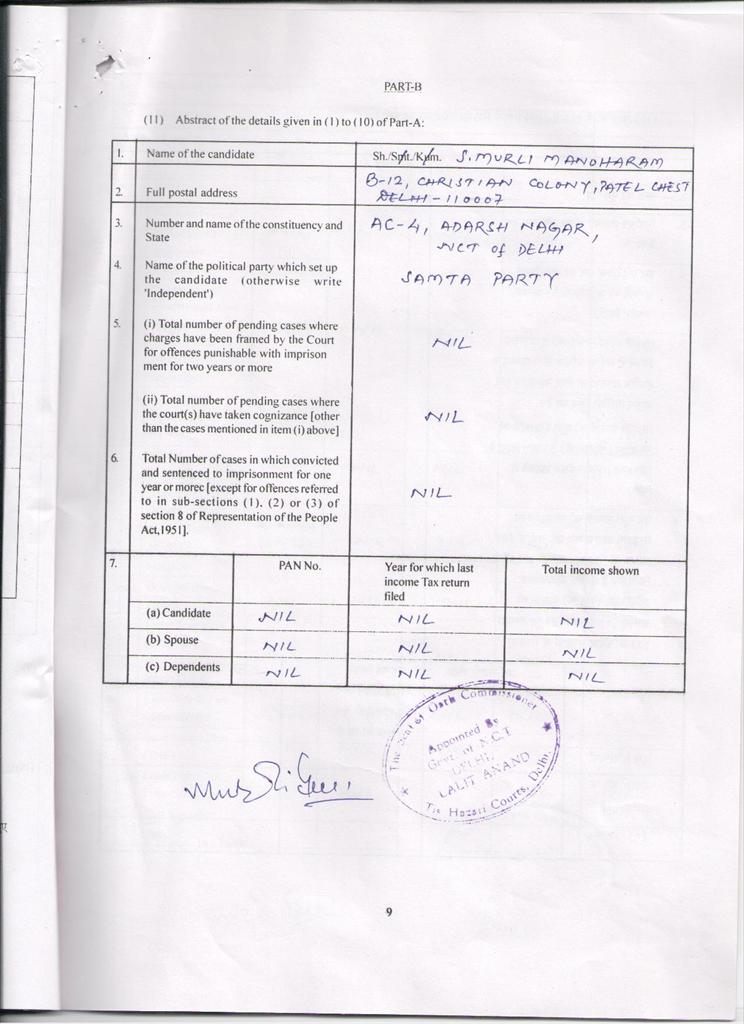 PART-B
(11) Abstract of the details given in (1) to (10) of Part-A:
1. Name of the candidate Sh./Smt./Kum. S. MURLI MANOHARAM
2. Full postal address B-12, CHRISTIAN COLONY, PATEL CHEST
DELHI - 110007
3. Number and name of the constituency and
State
AC-4, ADARSH NAGAR,
NCT of DELHI
4. Name of the political party which set up
the candidate (otherwise write
'Independent')
SAMTA PARTY
5. (i) Total number of pending cases where
charges have been framed by the Court
for offences punishable with imprison
ment for two years or more
NIL
(ii) Total number of pending cases where
the court(s) have taken cognizance [other
than the cases mentioned in item (i) above]
NIL
6. Total Number of cases in which convicted
and sentenced to imprisonment for one
year or morec [except for offences referred
to in sub-sections (1). (2) or (3) of
section 8 of Representation of the People
Act,1951].
NIL
7. PAN No. Year for which last
income Tax return
filed
Total income shown
(a) Candidate NIL NIL NIL
(b) Spouse NIL NIL NIL
(c) Dependents NIL NIL NIL
The Seal of Oath Commissioner
Appointed By
Govt. of N.C.T
DELHI,
LALIT ANAND
Tis Hazari Courts, Delhi.
9